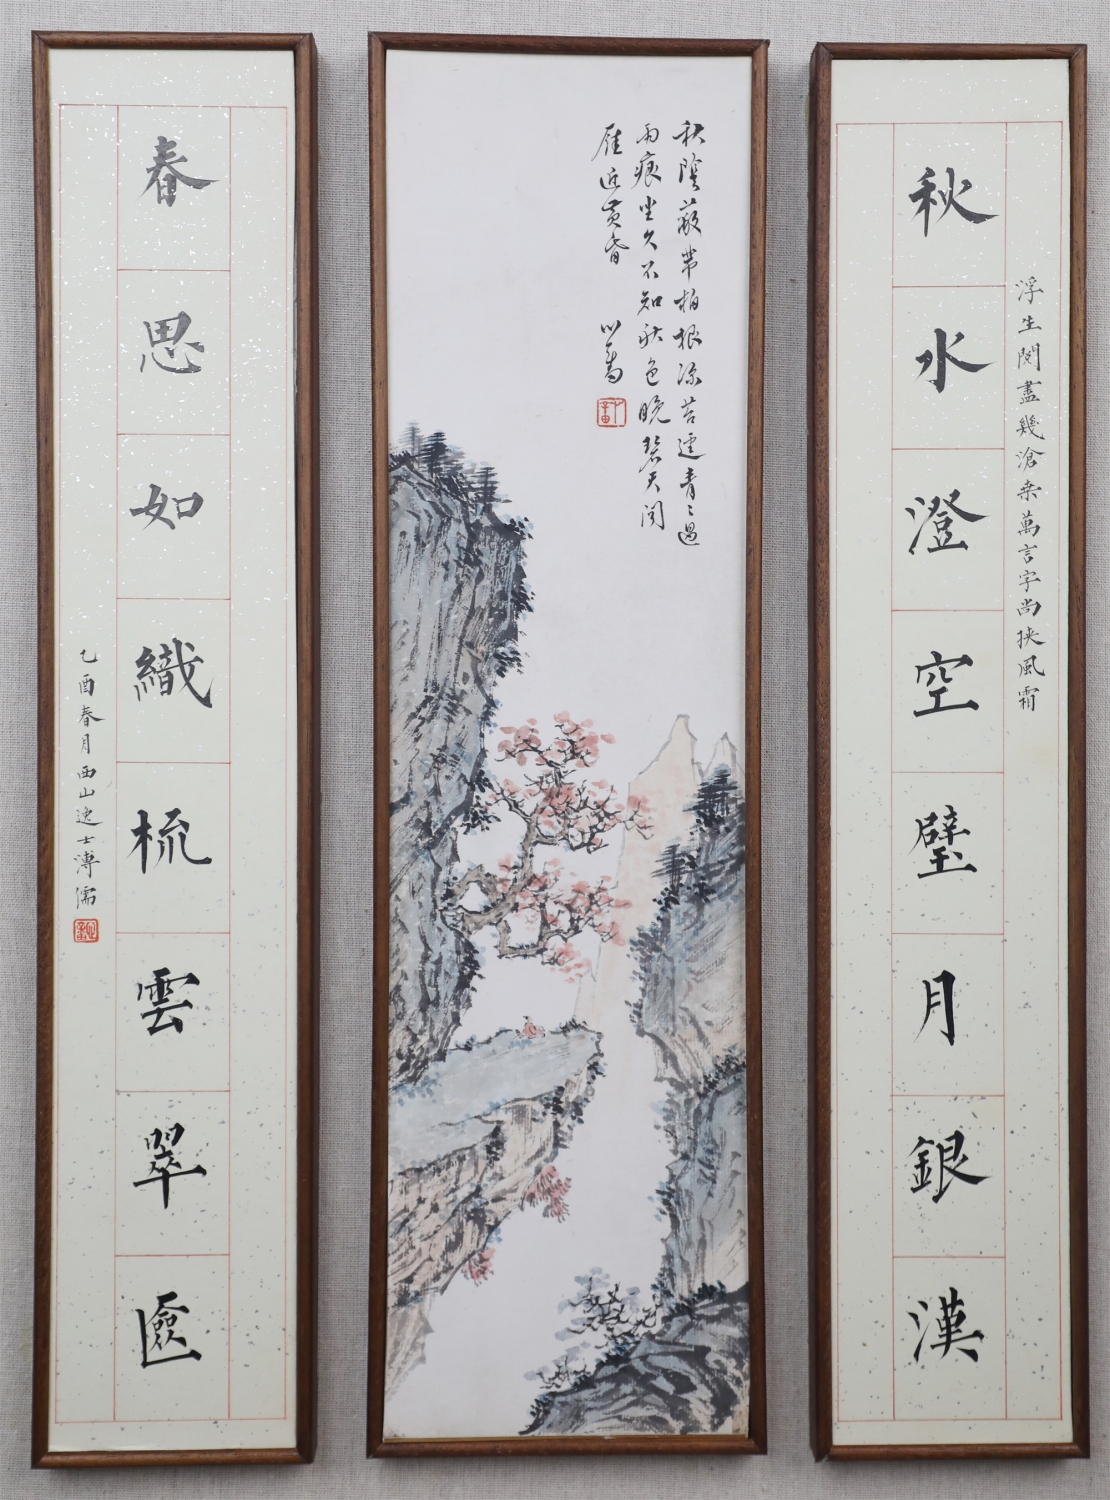 浮生閱盡幾滄桑萬言字尚挾風霜
秋水澄空璧月銀漢
秋陰蔽芾柏根涼苔逕青〻過
雨痕坐久不知秋色晚碧天聞
雁近黃昏
心畬
春思如織梳雲翠匳
乙酉春月西山逸士溥儒